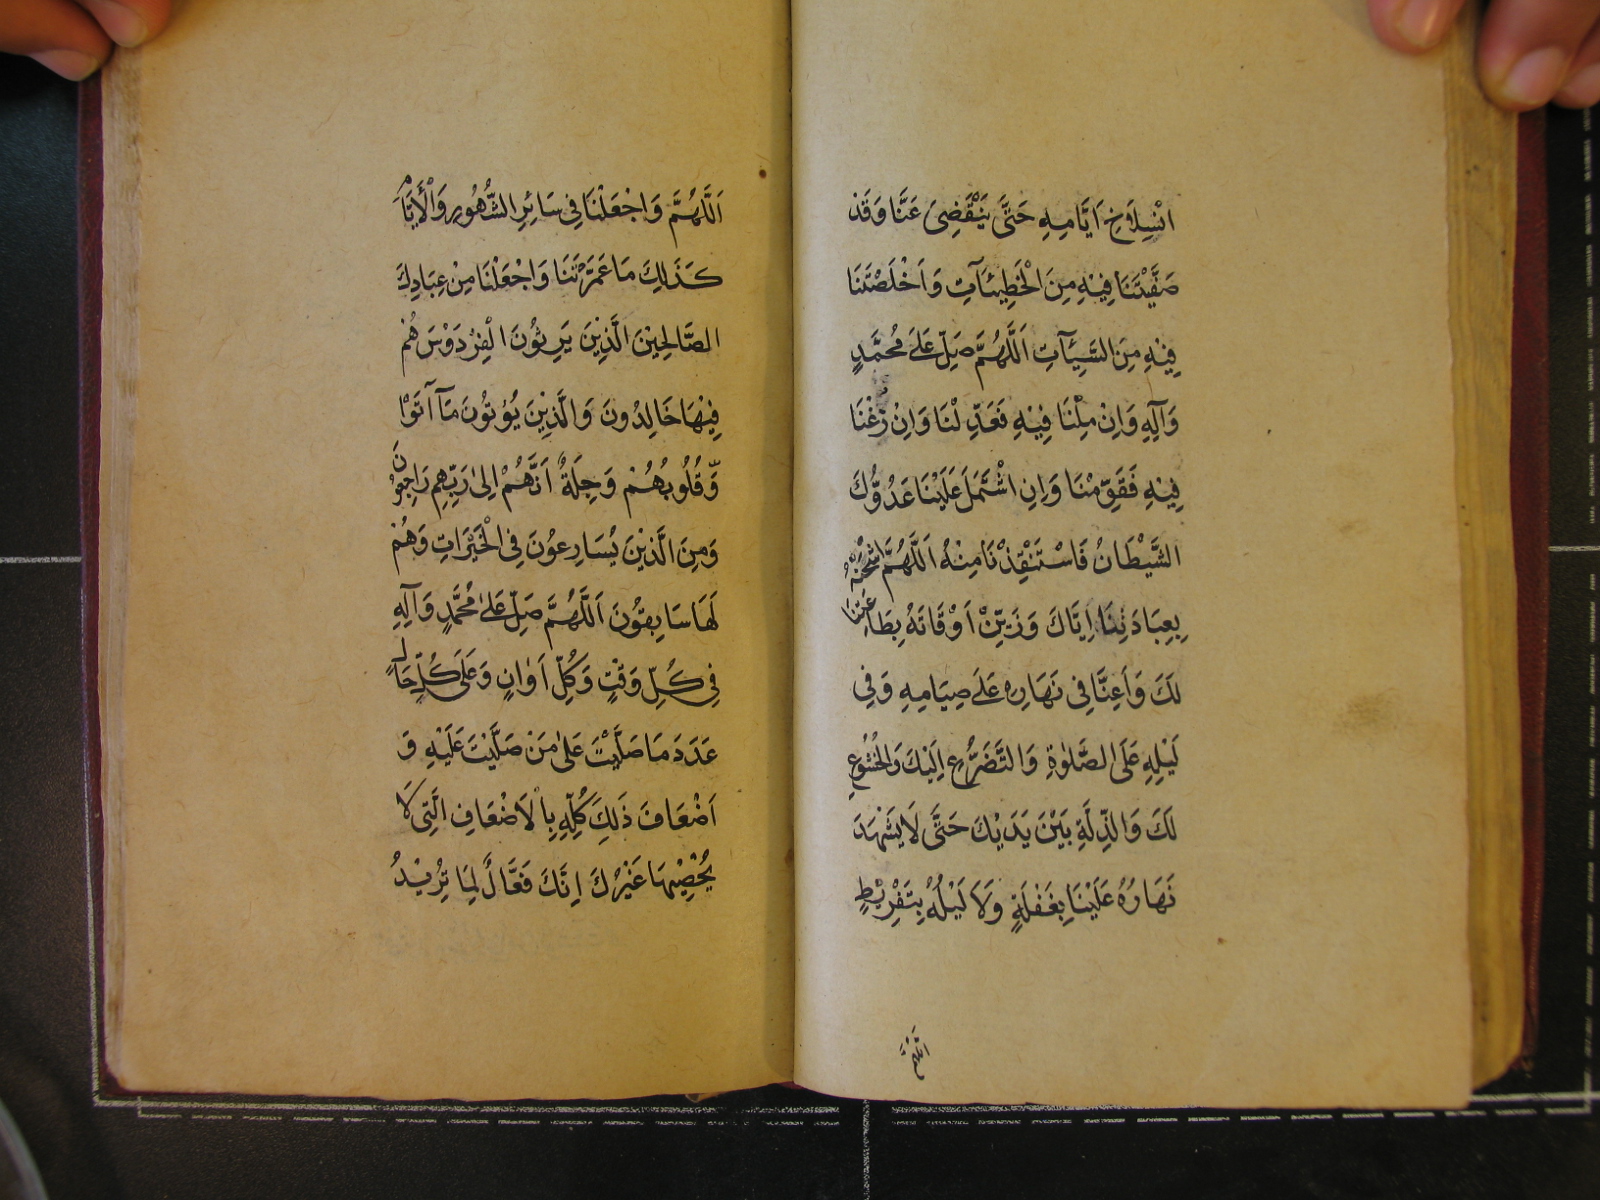 انْسِلَاخِ اَيَّامِهِ حَتّٰى يَنْقَضِىَ عَنَّا وَقَدْ
صَفَّيْتَنَا فِيْهِ مِنَ الْخَطِيْئَاتِ وَاَخْلَصْتَنَا
فِيْهِ مِنَ السَّيِّئَآتِ اَللّٰهُمَّ صَلِّ عَلٰى مُحَمَّدٍ
وَآلِهِ وَاِنْ مِلْنَا فِيْهِ فَعَدِّلْنَا وَاِنْ زُغْنَا
فِيْهِ فَقَوِّمْنَا وَاِنِ اشْتَمَلَ عَلَيْنَا عَدُوُّكَ
الشَّيْطَانُ فَاسْتَنْقِذْنَا مِنْهُ اَللّٰهُمَّ اشْحَنْهُ
بِعِبَادَتِنَا اِيَّاكَ وَزَيِّنْ اَوْقَاتَهُ بِطَاعَتِنَا
لَكَ وَاَعِنَّا فِى نَهَارِهِ عَلٰى صِيَامِهِ وَفِى
لَيْلِهِ عَلَى الصَّلٰوةِ وَالتَّضَرُّعِ اِلَيْكَ وَالْخُشُوْعِ
لَكَ وَالذِّلَّةِ بَيْنَ يَدَيْكَ حَتّٰى لَا يَشْهَدَ
نَهَارُهُ عَلَيْنَا بِغَفْلَةٍ وَلَا لَيْلُهُ بِتَفْرِيْطٍ
اَللّٰهُمَّ
اَللّٰهُمَّ وَاجْعَلْنَا فِى سَائِرِ الشُّهُوْرِ وَالْاَيَّامِ
كَذٰلِكَ مَا عَمَّرْتَنَا وَاجْعَلْنَا مِنْ عِبَادِكَ
الصَّالِحِيْنَ الَّذِيْنَ يَرِثُوْنَ الْفِرْدَوْسَ هُمْ
فِيْهَا خَالِدُوْنَ وَالَّذِيْنَ يُؤْتُوْنَ مَآ آتَوْا
وَّقُلُوْبُهُمْ وَجِلَةٌ اَنَّهُمْ اِلٰى رَبِّهِمْ رَاجِعُوْنَ
وَمِنَ الَّذِيْنَ يُسَارِعُوْنَ فِى الْخَيْرَاتِ وَهُمْ
لَهَا سَابِقُوْنَ اَللّٰهُمَّ صَلِّ عَلٰى مُحَمَّدٍ وَآلِهِ
فِى كُلِّ وَقْتٍ وَكُلِّ اَوَانٍ وَعَلٰى كُلِّ حَالٍ
عَدَدَ مَا صَلَّيْتَ عَلٰى مَنْ صَلَّيْتَ عَلَيْهِ وَ
اَضْعَافَ ذٰلِكَ كُلِّهِ بِالْاَضْعَافِ الَّتِى لَا
يُحْصِيْهَا غَيْرُكَ اِنَّكَ فَعَّالٌ لِمَا تُرِيْدُ